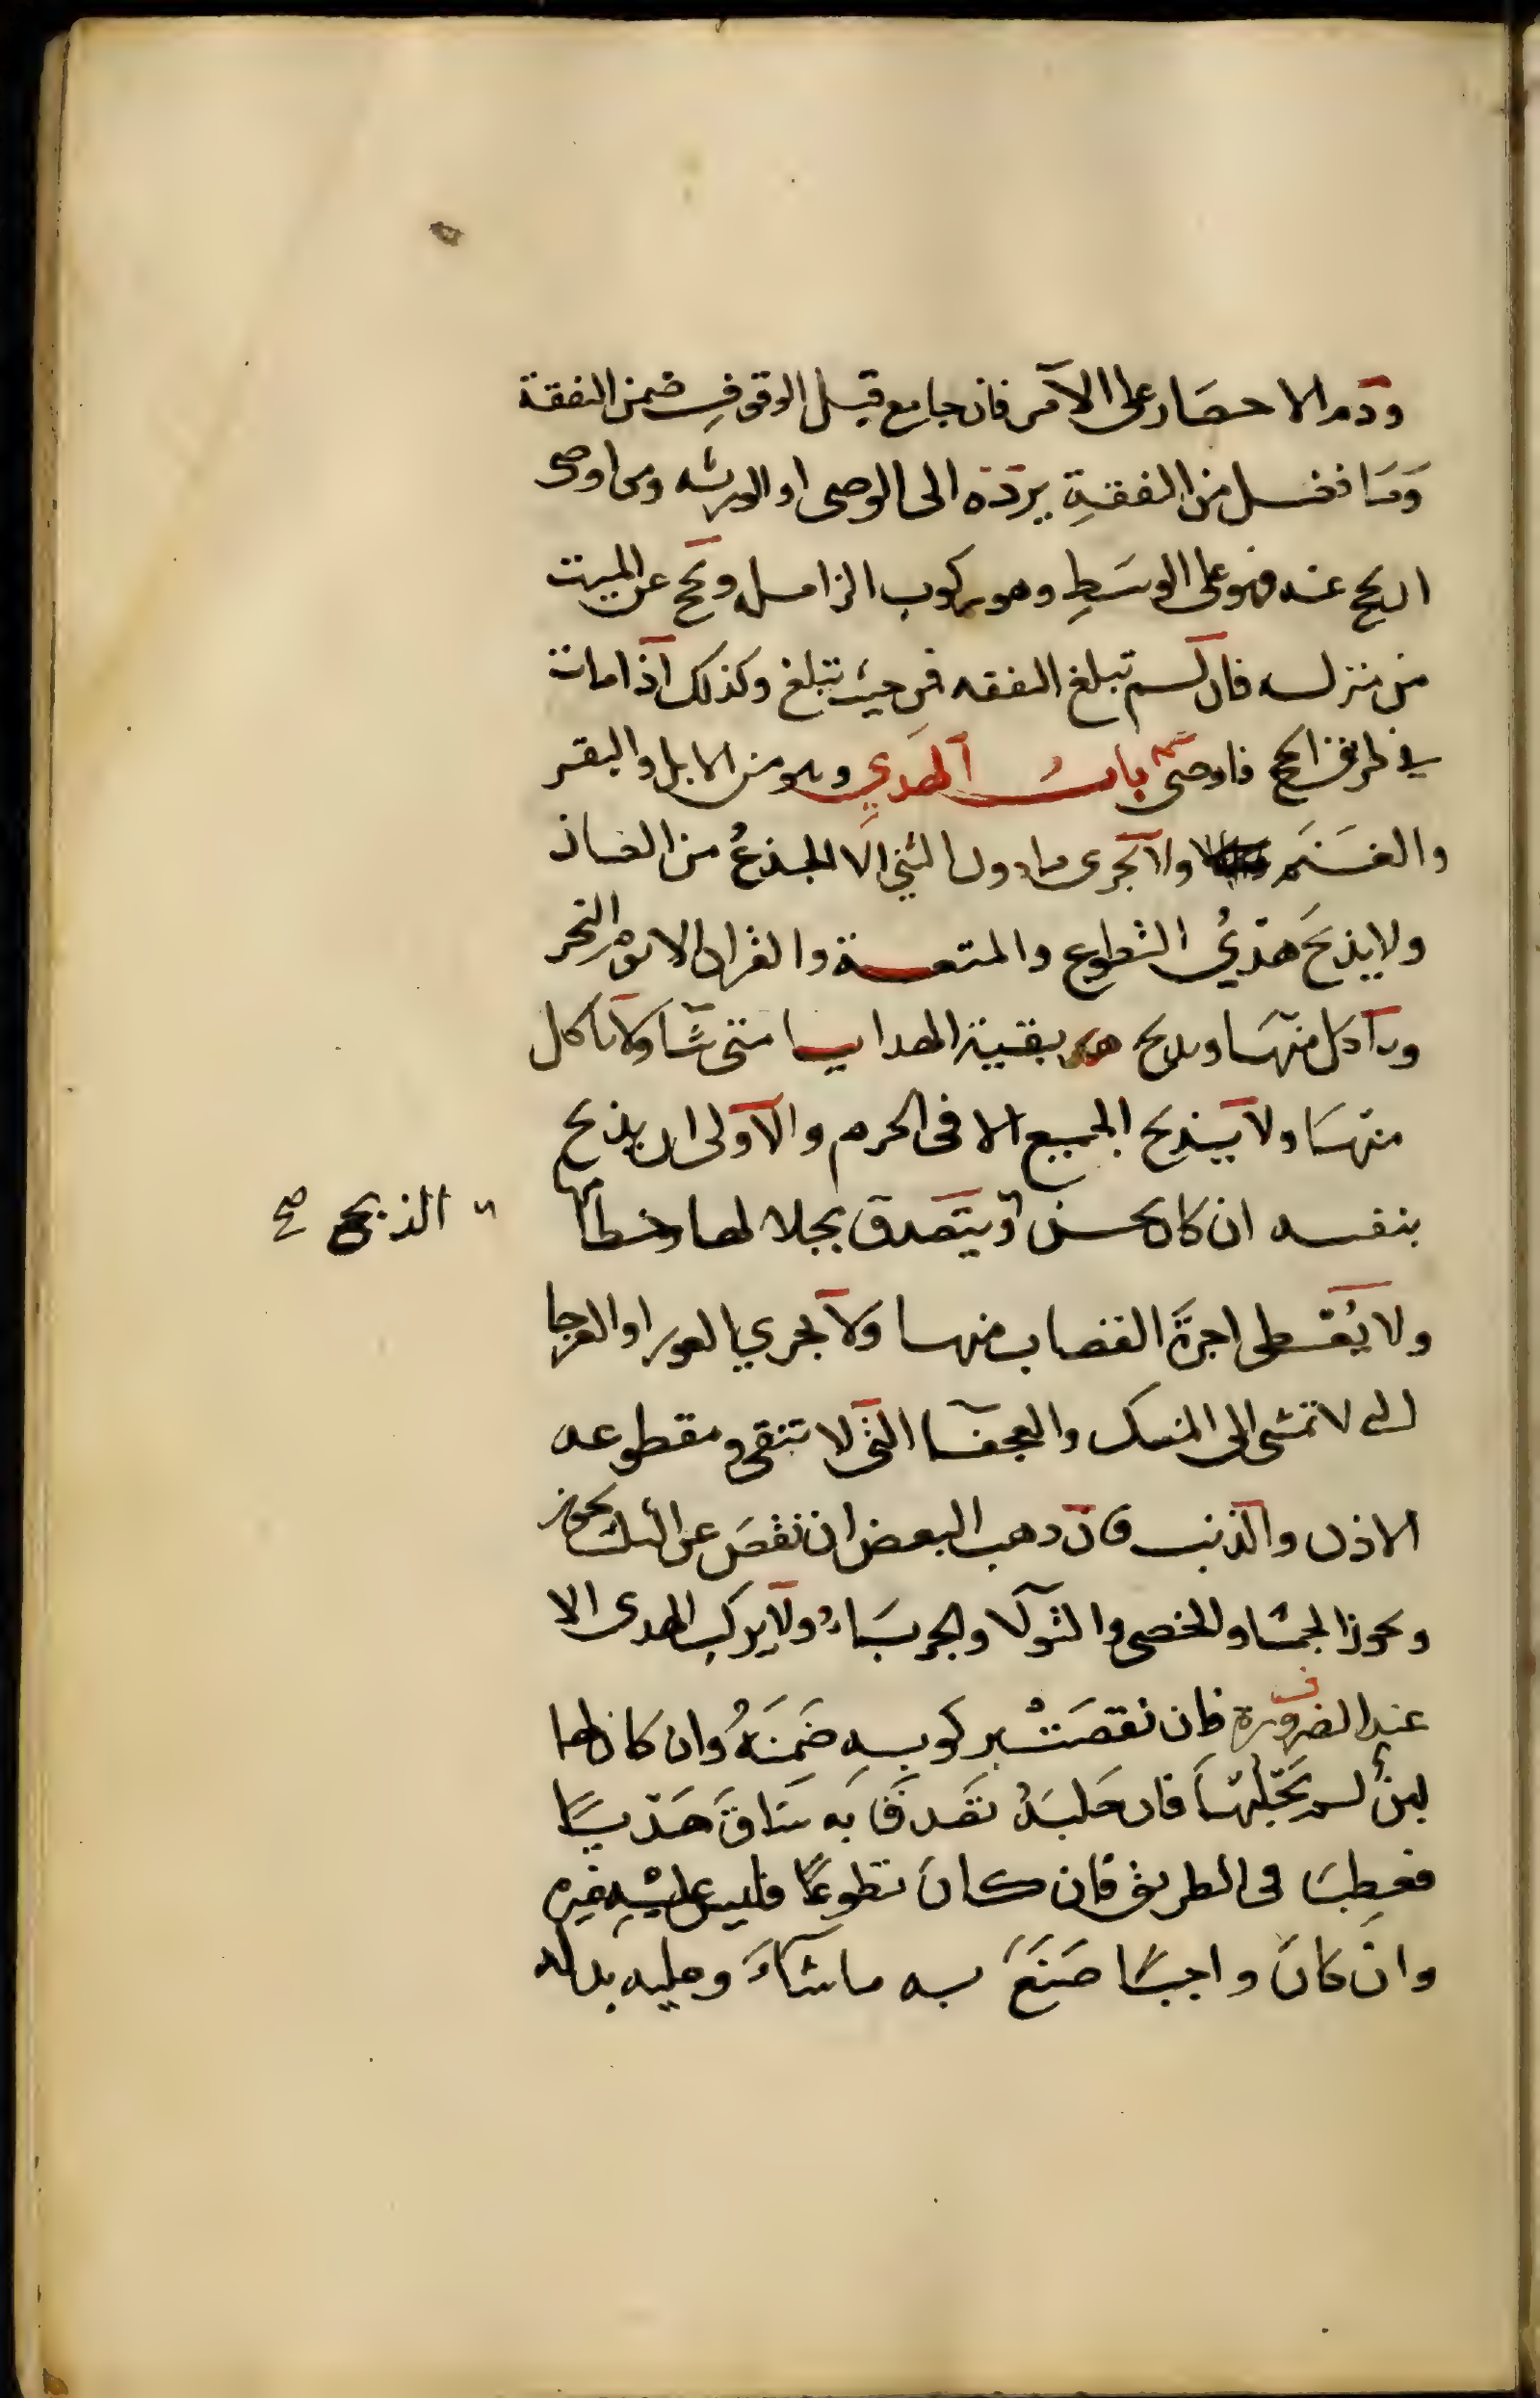 ودم الاحصار على الآمر فان جامع قبل الوقوف ضمن النفقة
وَمَا فضل من النفقةِ يردّه الى الوصى او الورثه ومن اوصى
ان يحج عنه فهو على الوسَطِ وهو ركوب الزاملة ويحج عن الميت
من منزله فان لم تبلغ النفقه فمن حيث تبلغ وكذلك اذا مات
في طريق الحج فاوصى بابُ الهَديِ وهو من الابل والبقر
والغنَم ولا يجزى مادون الثني الا الجذعُ من الضان
ولا يذبحَ هديُ التطوع والمتعة والقران الا يوم النحر
وياكل منهَا ويذبح بقية الهدايا متى شَا ولا ياكل
منهَا ولا يذبح الجميع الا فى الحرم والاولى ان يذبح
بنفسه ان كان يحسن ويتصدق بجلالها وخطامها
" الذبح صح
ولا يُعطى اجرَةَ القصاب منها ولا يجزي العورا والعرجا
التى لا تمشى الى المنسك والعجفا التى لا تنقى ومقطوعه
الاذن والذنب فان ذهب البعض ان نقصَ عن الثلث يجوز
ويجوز الجما والخصى والثولا والجربَاءُ ولا يركب الهدى الا
عند الضرورة فان نقصَتْ بركوبهِ ضَمِنَهُ وان كان لها
لبنٌ لم يَحْلُبْهَا فان حَلبَهُ تَصَدقَ به سَاقَ هَدْيًا
فعطِبَ فى الطريق فان كانَ تطوعًا فليس عليْهِ غيره
وان كانَ واجبًا صَنَعَ به ما شآءَ وعليه بدله